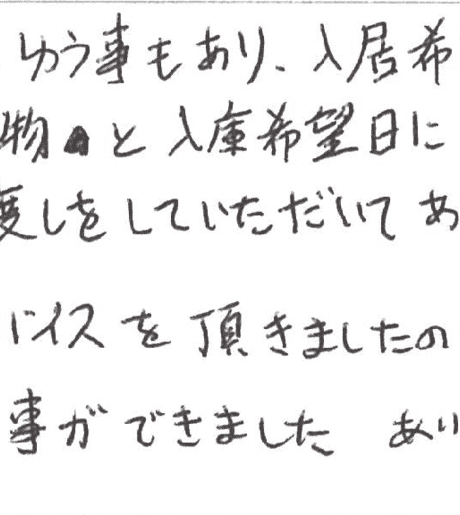 ゆう事もあり、入居希
物 と入庫希望日に
度しをしていただいてあ
バイスを頂きましたの
事ができました あり